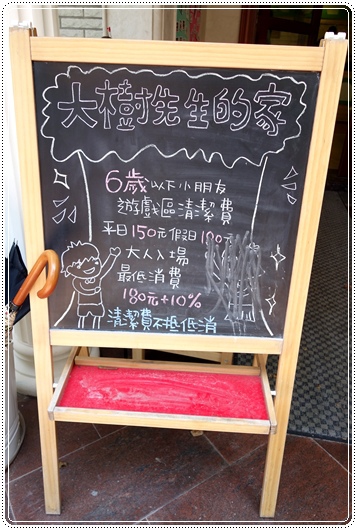 大樹先生的家
6歲以下小朋友
遊戲區清潔費
平日150元假日190元
大人入場
最低消費
180元+10%
清潔費不抵低消